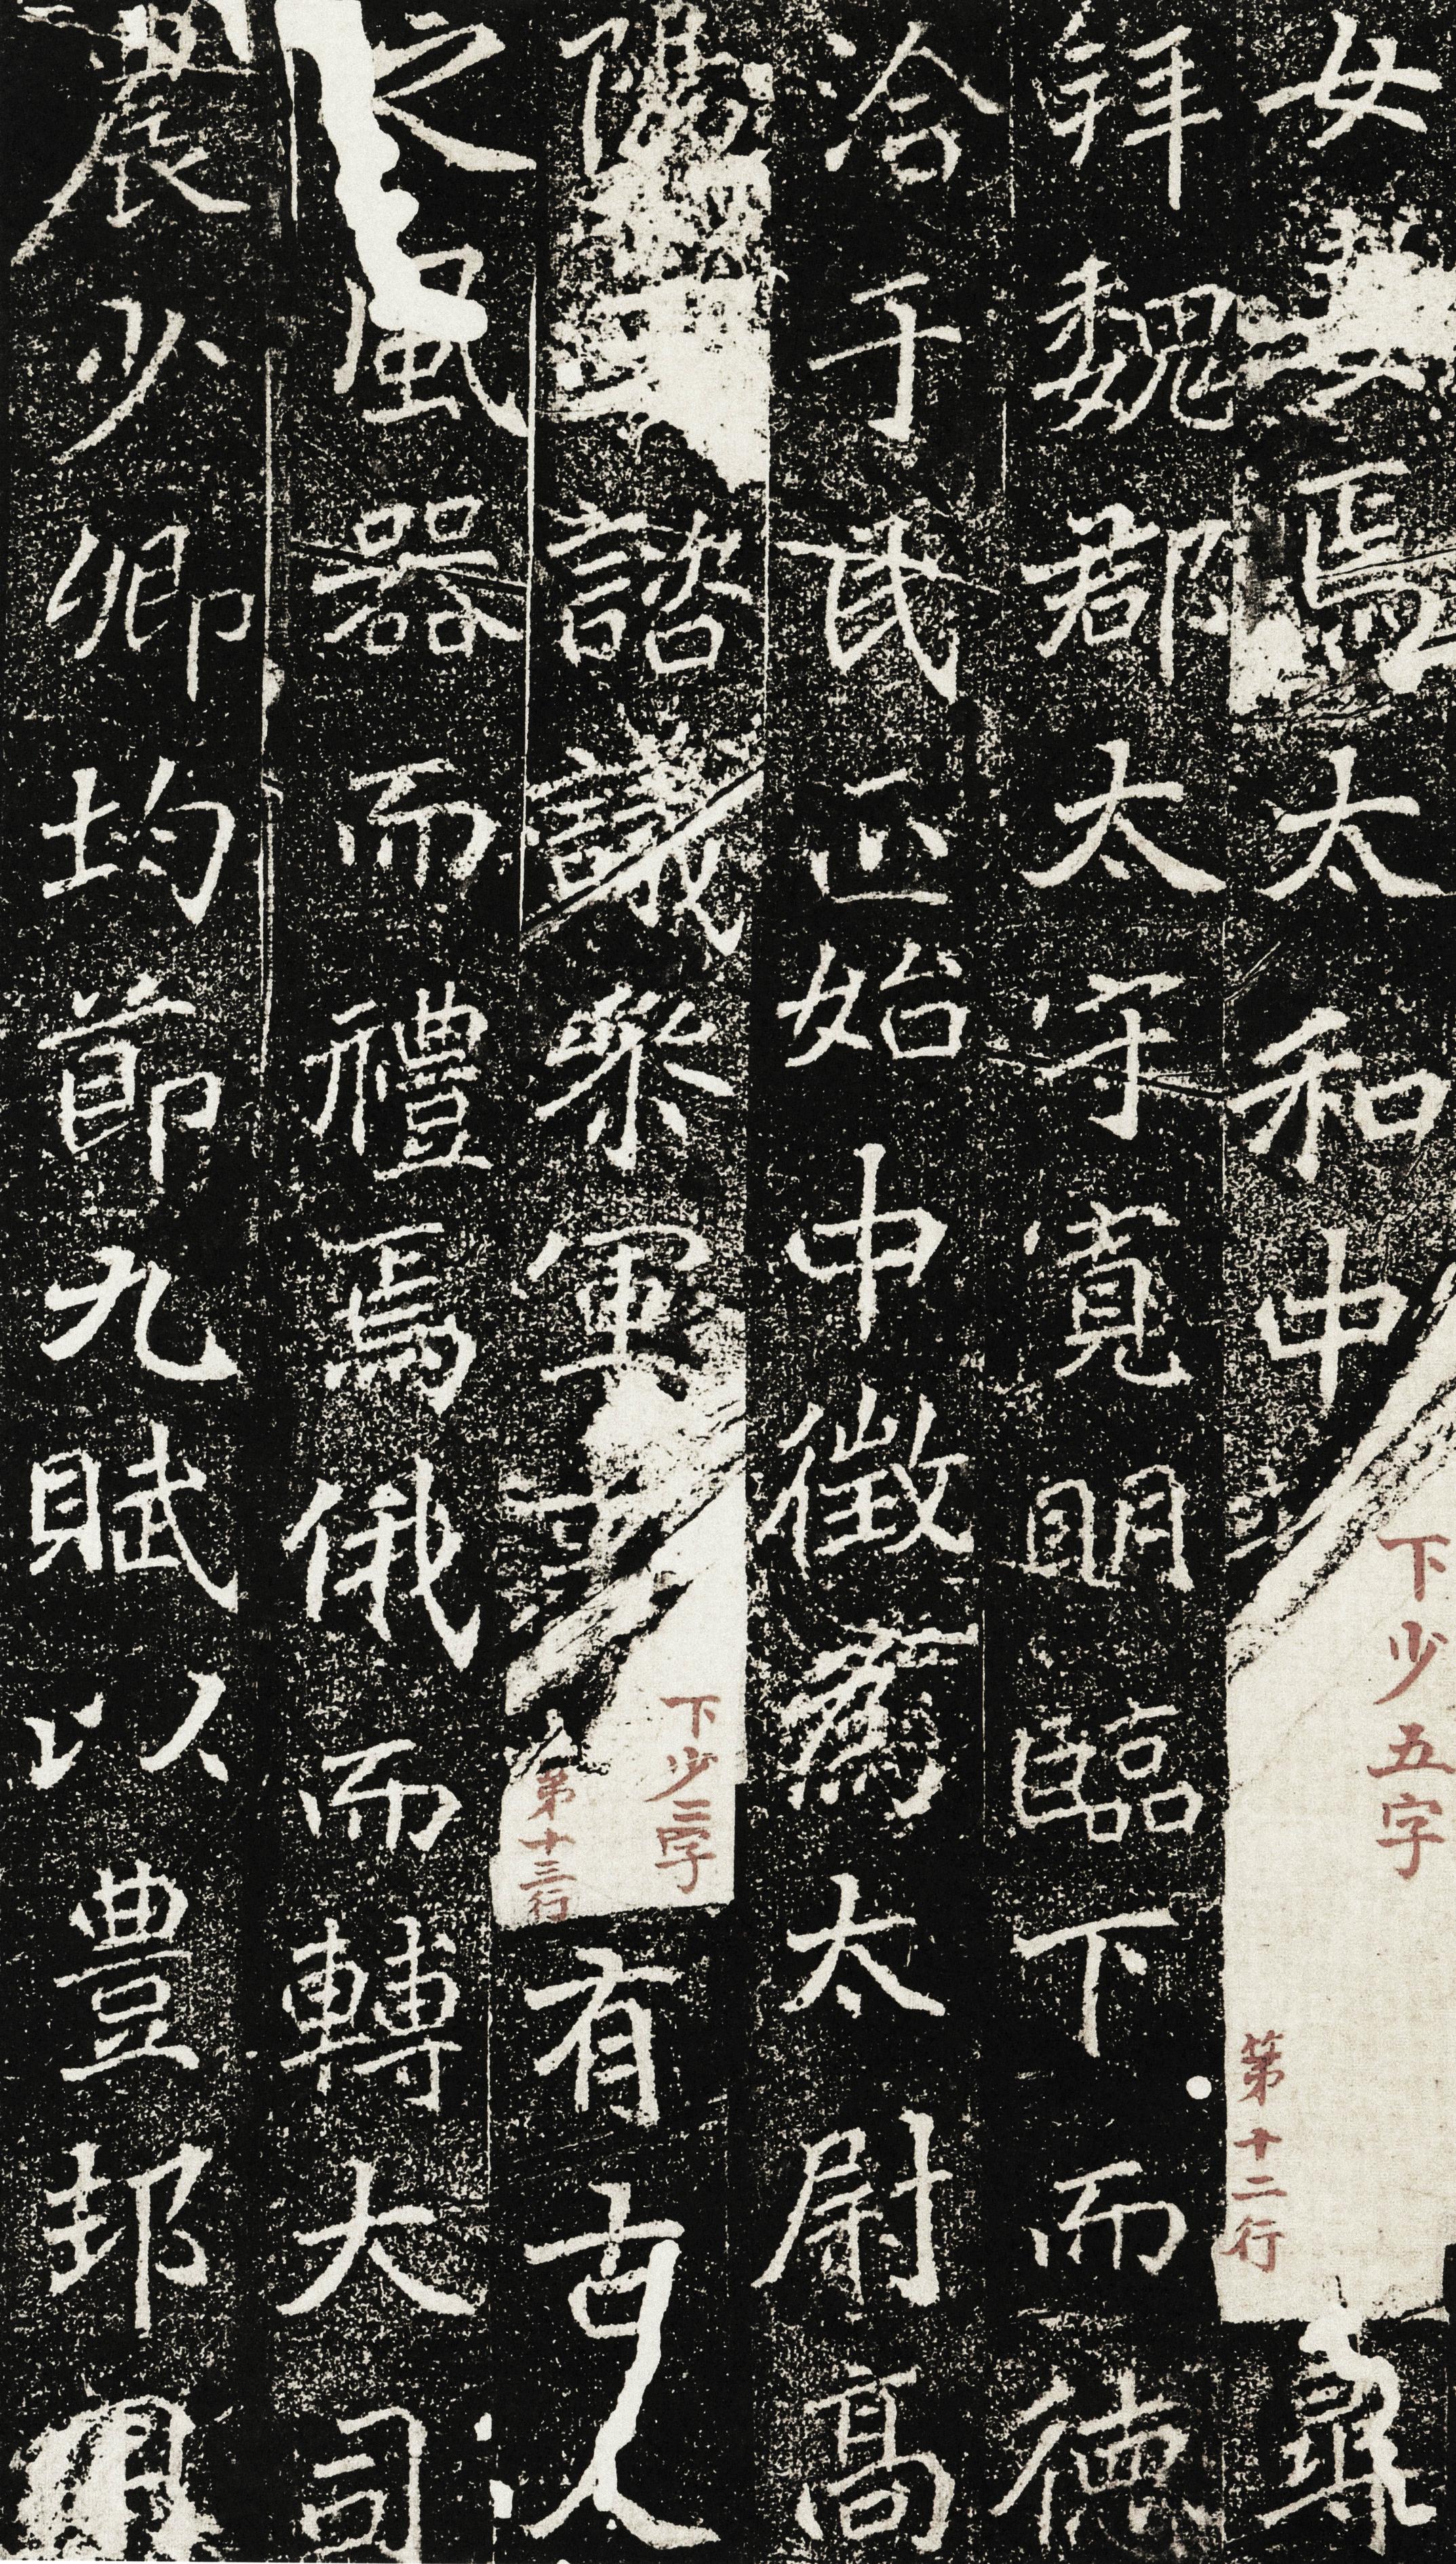 女妻焉太和中
下少五字
第十二行
尋
拜魏郡太守寬明臨下而德
洽于民正始中徵爲太尉高
陽王諮議叅軍事
下少三字
第十三行
有古人
之風器而禮焉俄而轉大司
農少卿均節九賦以豊邦用